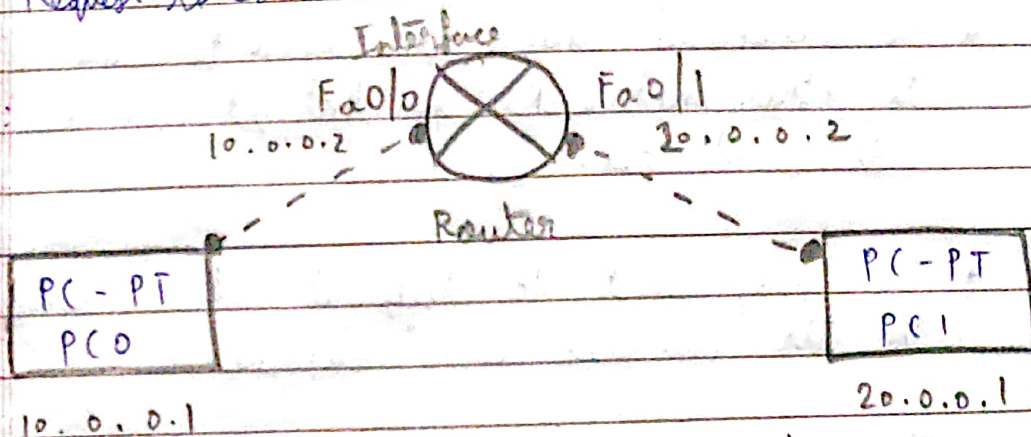 Interface
Fa0/0 Fa0/1
10.0.0.2 20.0.0.2
Router
PC-PT PC-PT
PC0 PC1
10.0.0.1 20.0.0.1